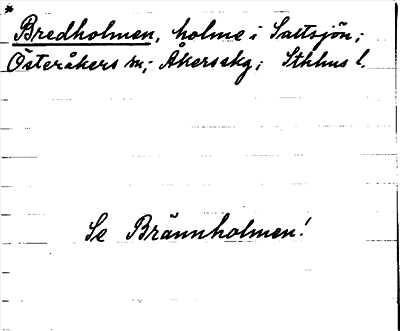 *
Bredholmen, holme i Saltsjön;
Österåkers sn; Åkersskg; Sthlms l.
Se Brännholmen!